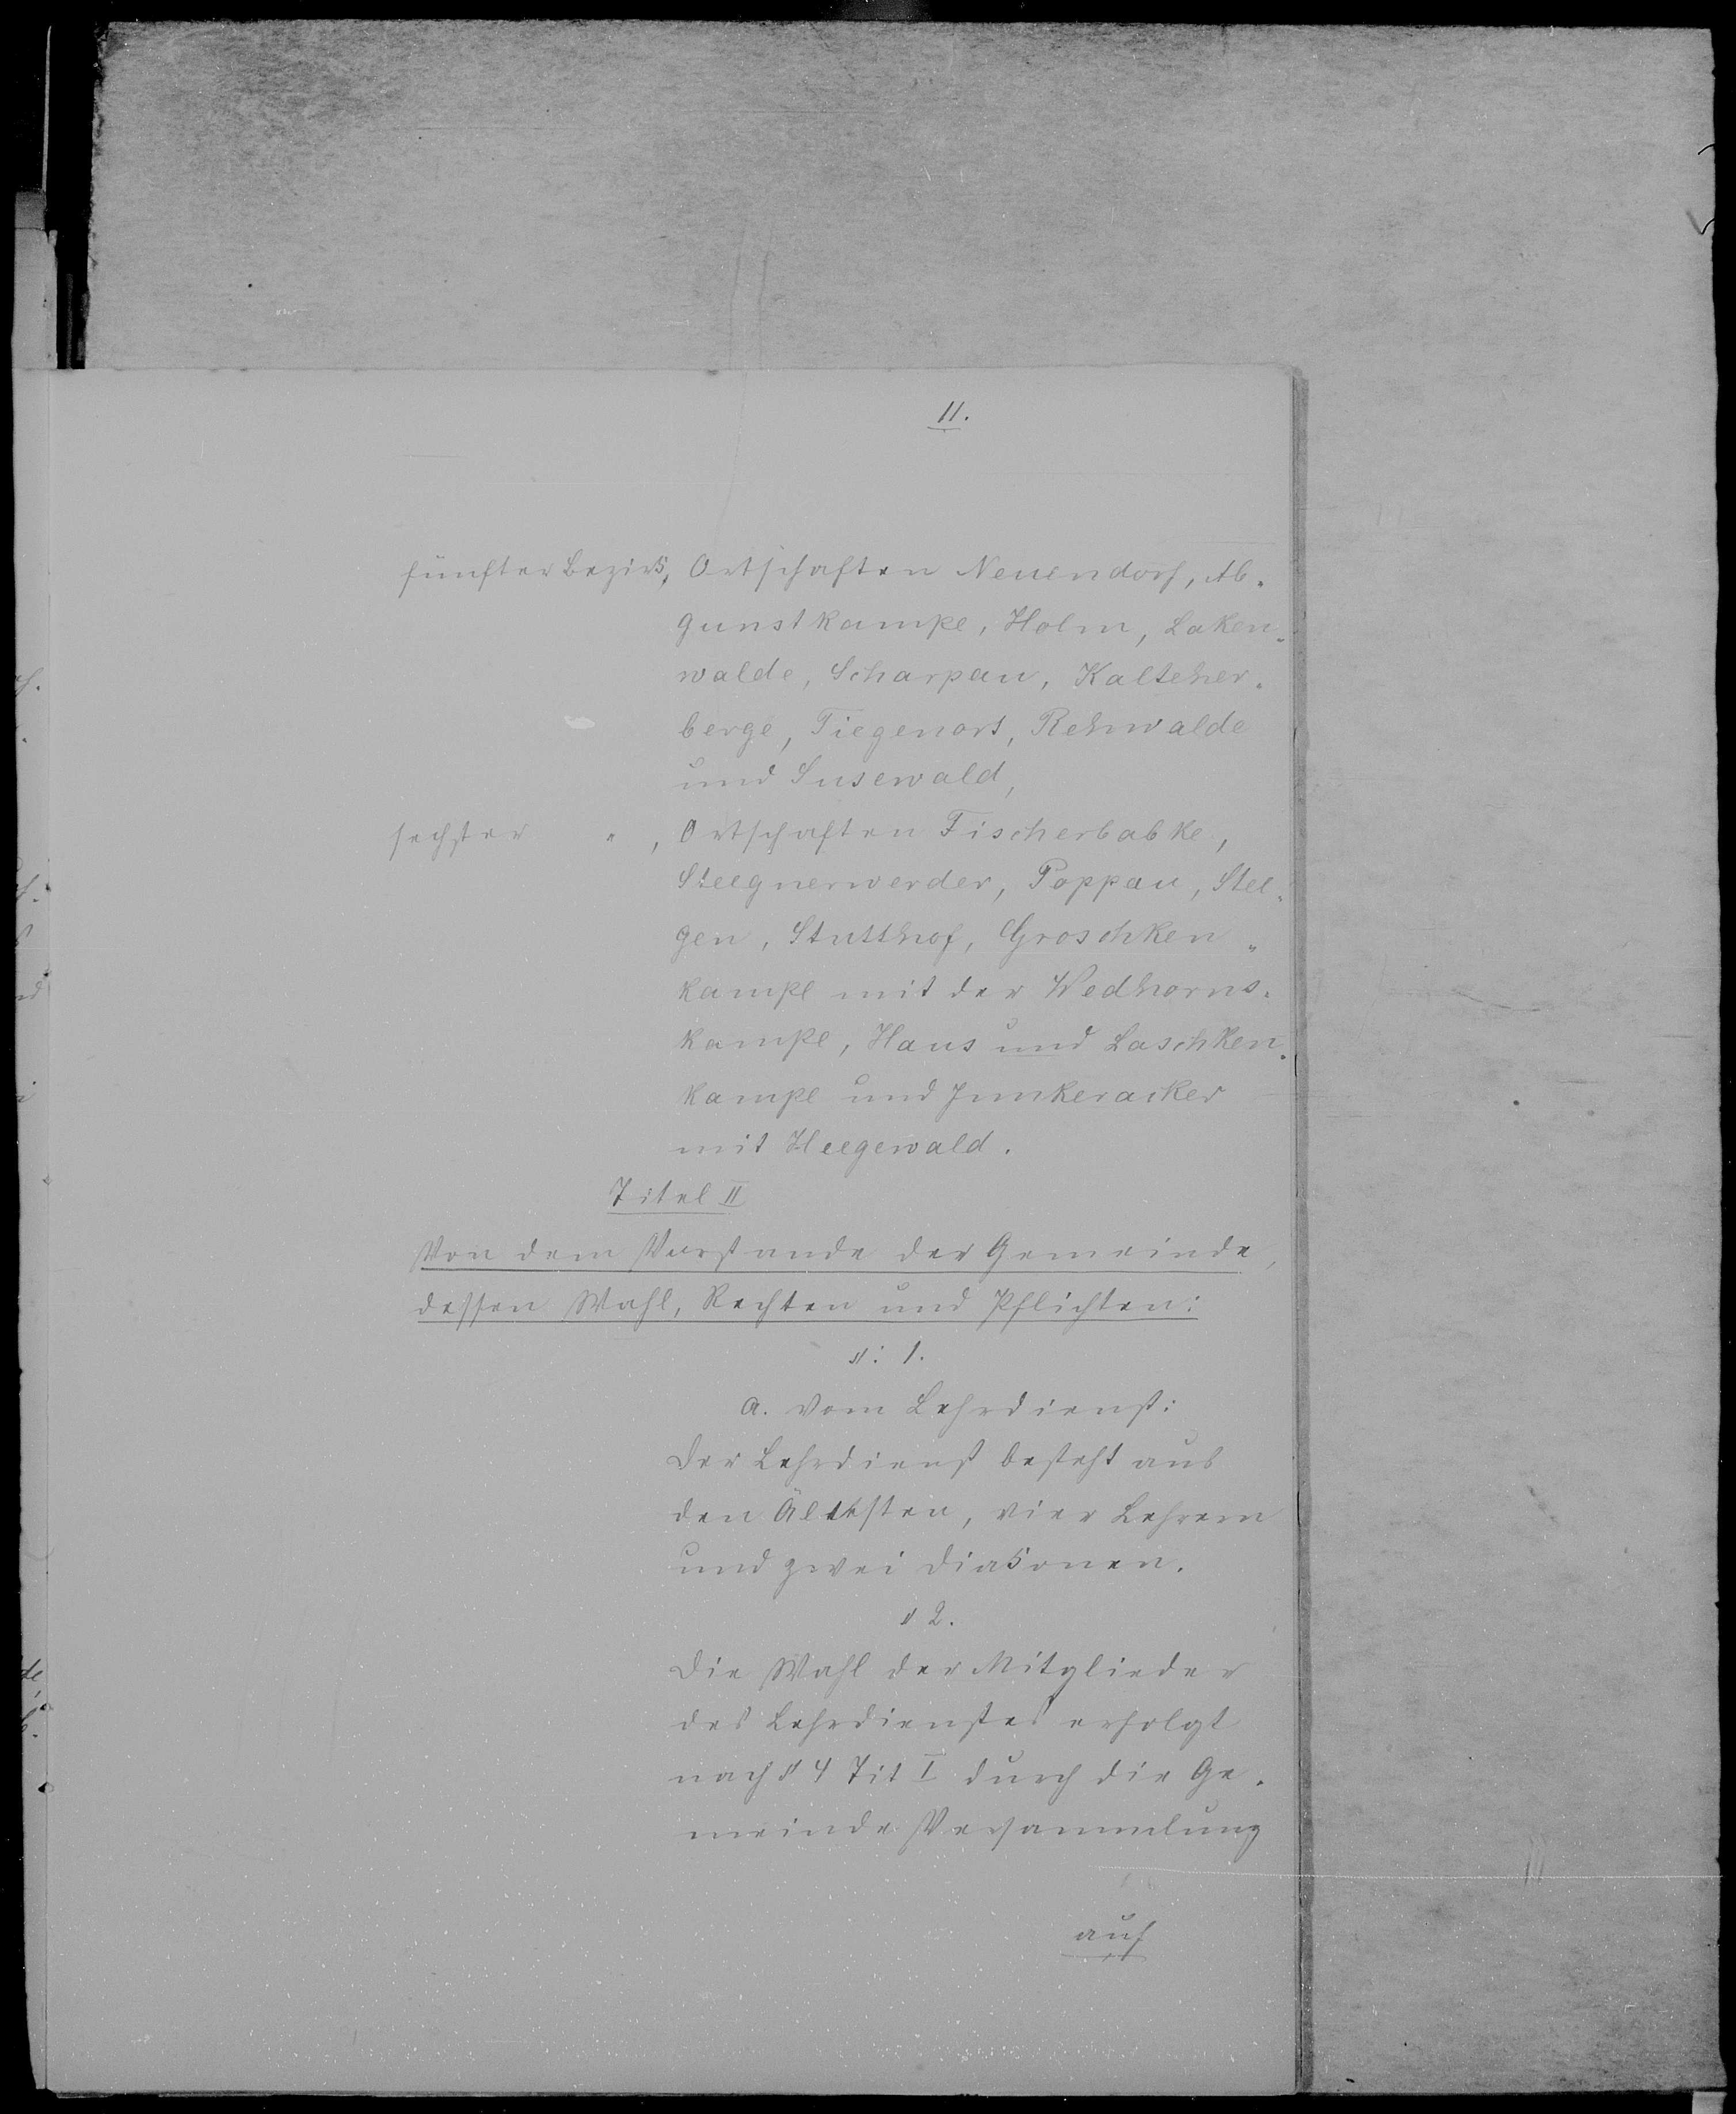 11.
fünfter Bezirk, Ortschaften Neuendorf, Ab-
gunstkampe, Holm, Laken-
walde, Scharpau, Kalteher-
berge, Tiegenort, Rehwalde
und Susewald,
sechster " , Ortschaften Fischerbabke,
Steegnerwerder, Poppau, Stee-
gen, Stutthof, Groschken-
kampe mit der Wedhorns-
kampe, Haus und Laschken-
kampe und Junkeracker
mit Heegewald.
Titel II
Von dem Vorstande der Gemeinde,
dessen Wahl, Rechten und Pflichten:
§: 1.
a. vom Lehrdienst:
Der Lehrdienst besteht aus
den Ältesten, vier Lehrern
und zwei Diakonen.
§ 2.
Die Wahl der Mitglieder
des Lehrdienstes erfolgt
nach § 4 Tit I durch die Ge-
meinde Versammlung
auf